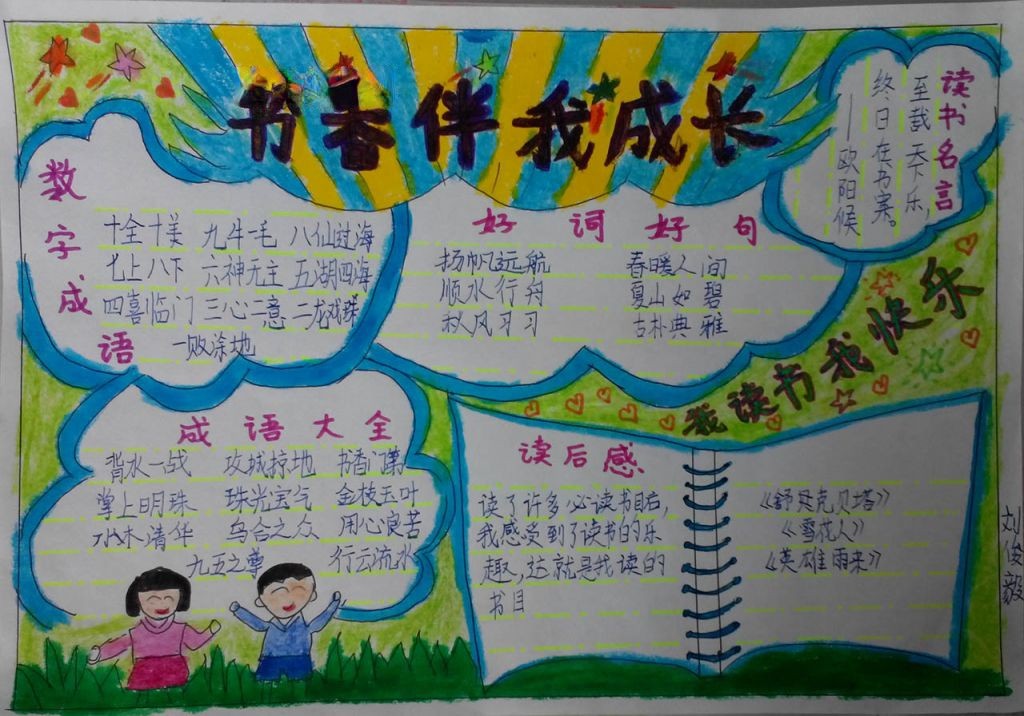 书香伴我成长
读书名言
至哉天下乐，
终日在书案。
——欧阳候
数字成语
十全十美 九牛一毛 八仙过海
七上八下 六神无主 五湖四海
四喜临门 三心二意 二龙戏珠
一败涂地
好词好句
扬帆远航 春暖人间
顺水行舟 夏山如碧
秋风习习 古朴典雅
我读书我快乐
成语大全
背水一战 攻城掠地 书香门第
掌上明珠 珠光宝气 金枝玉叶
水木清华 乌合之众 用心良苦
九五之尊 行云流水
读后感
读了许多必读书目后，
我感受到了读书的乐
趣，这就是我读的
书目
《舒克贝塔》
《雪花人》
《英雄雨来》
刘俊毅